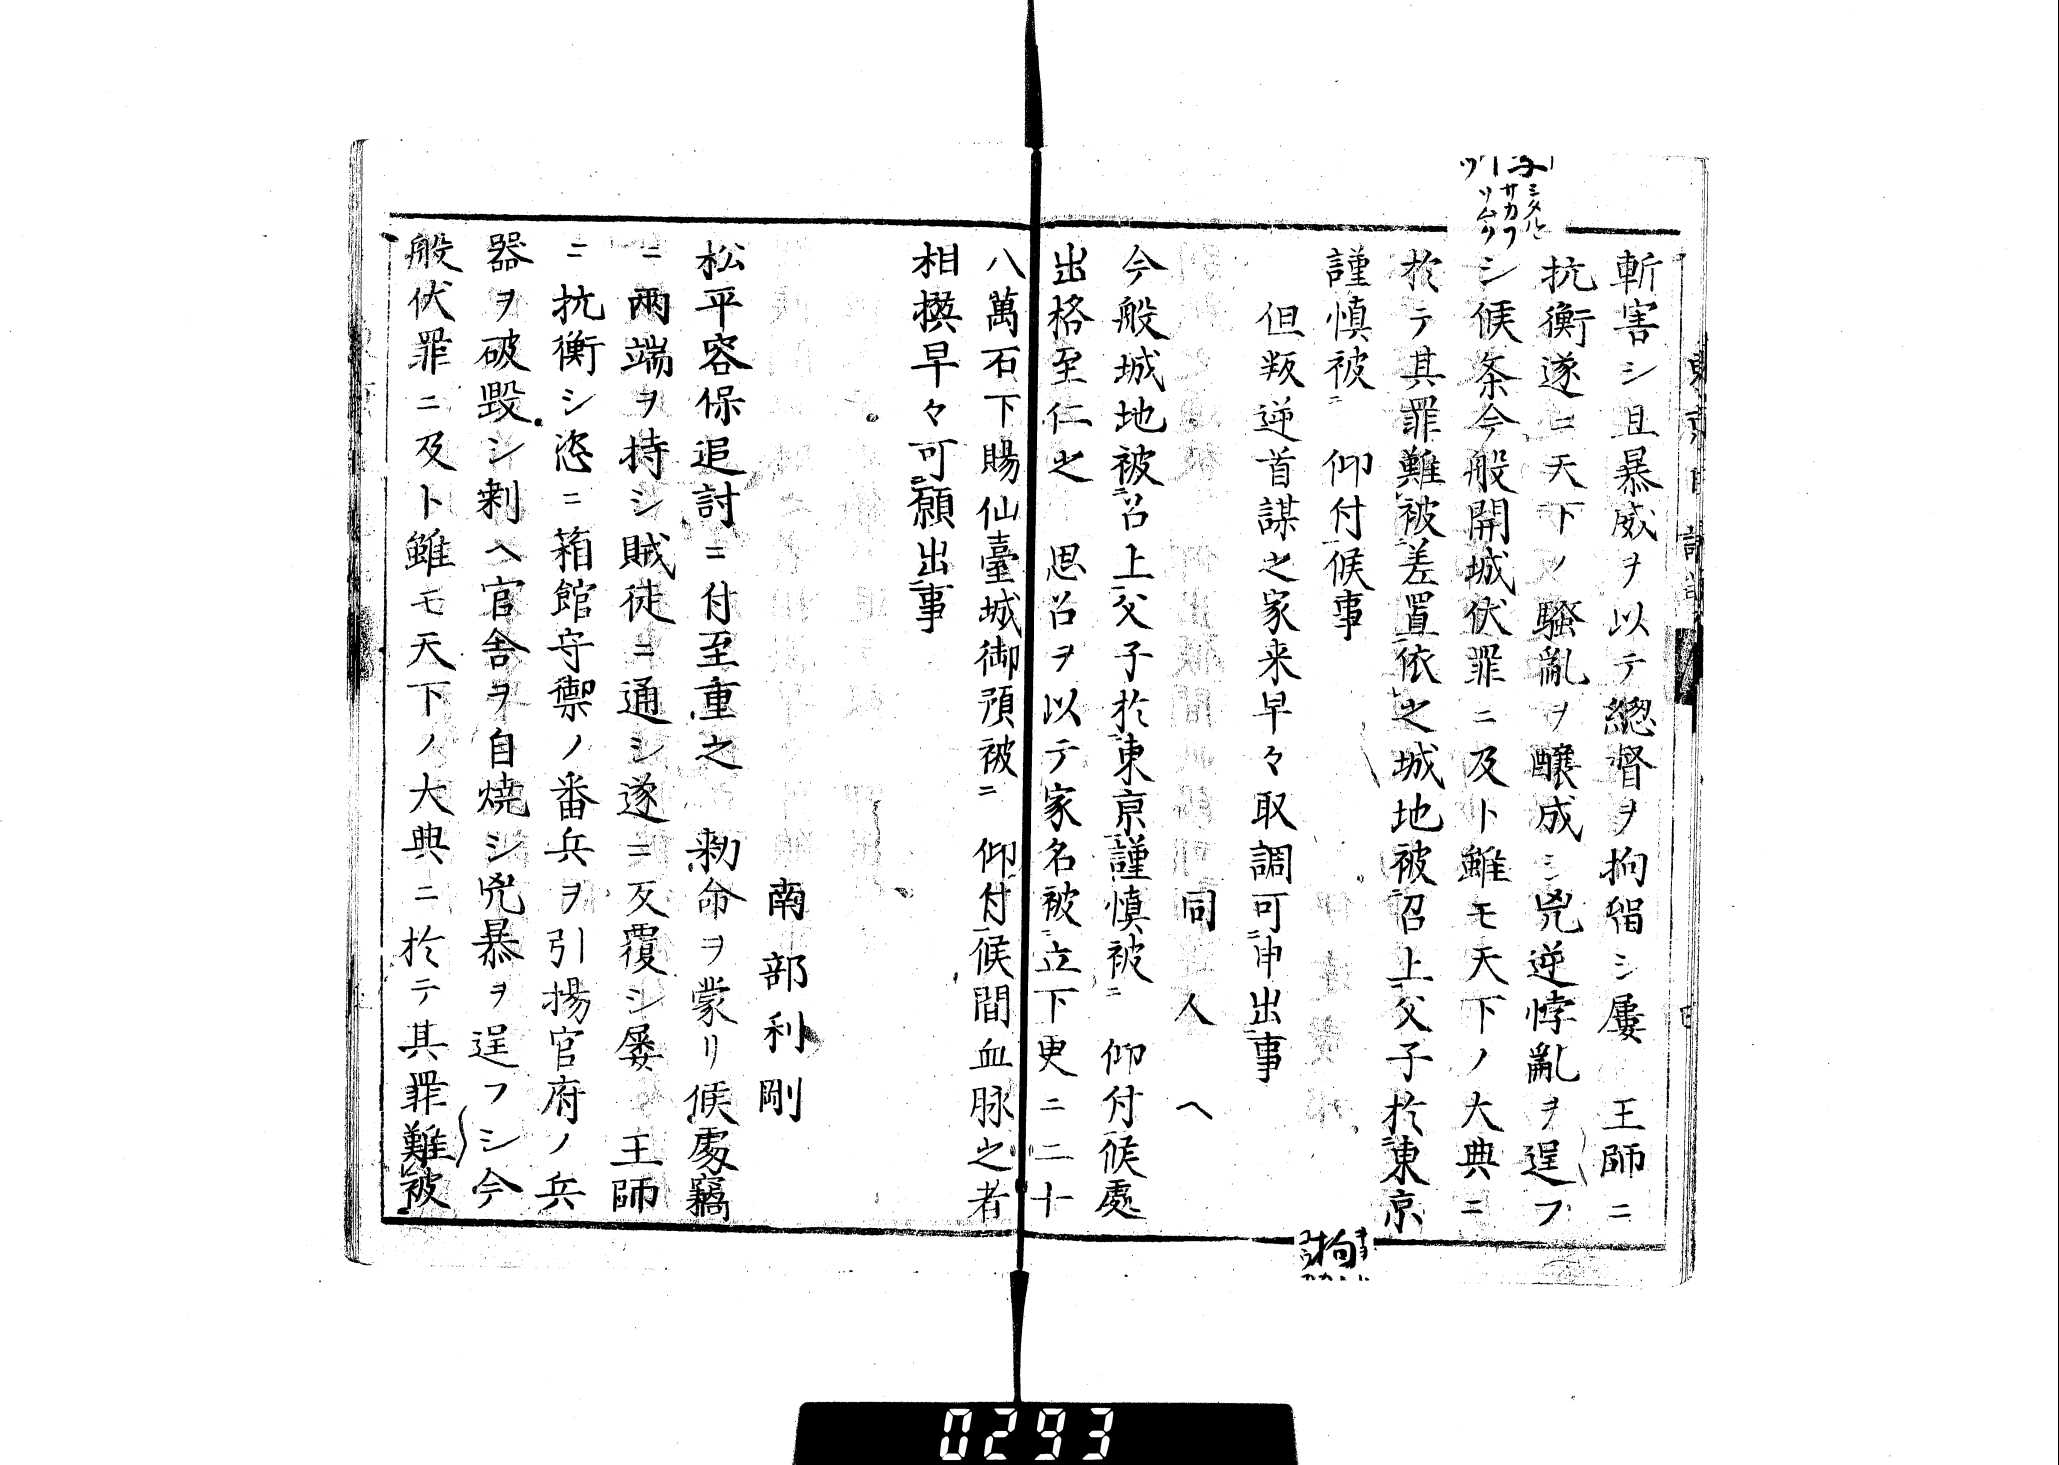 斬害シ且暴威ヲ以テ總督ヲ拘留シ屢　王師ニ
抗衡遂ニ天下ノ騷亂ヲ釀成シ兇逆悖亂ヲ逞フ
シ候条今般開城伏罪ニ及ト雖モ天下ノ大典ニ
於テ其罪難被差置依之城地被召上父子於東京
謹慎被ニ　仰付候事
但叛逆首謀之家来早々取調可申出事
同人へ
今般城地被召上父子於東京謹慎被ニ　仰付候處
出格至仁之　思召ヲ以テ家名被立下更ニ二十
八萬石下賜仙臺城御預被ニ　仰付候間血脉之者
相撰早々可願出事
南部利剛
松平容保追討ニ付至重之　勅命ヲ蒙リ候處竊
ニ兩端ヲ持シ賊徒ニ通シ遂ニ反覆シ屡　王師
ニ抗衡シ恣ニ箱館守禦ノ番兵ヲ引揚官府ノ兵
器ヲ破毀シ剰へ官舎ヲ自焼シ兇暴ヲ逞フシ今
般伏罪ニ及ト雖モ天下ノ大典ニ於テ其罪難被
0293